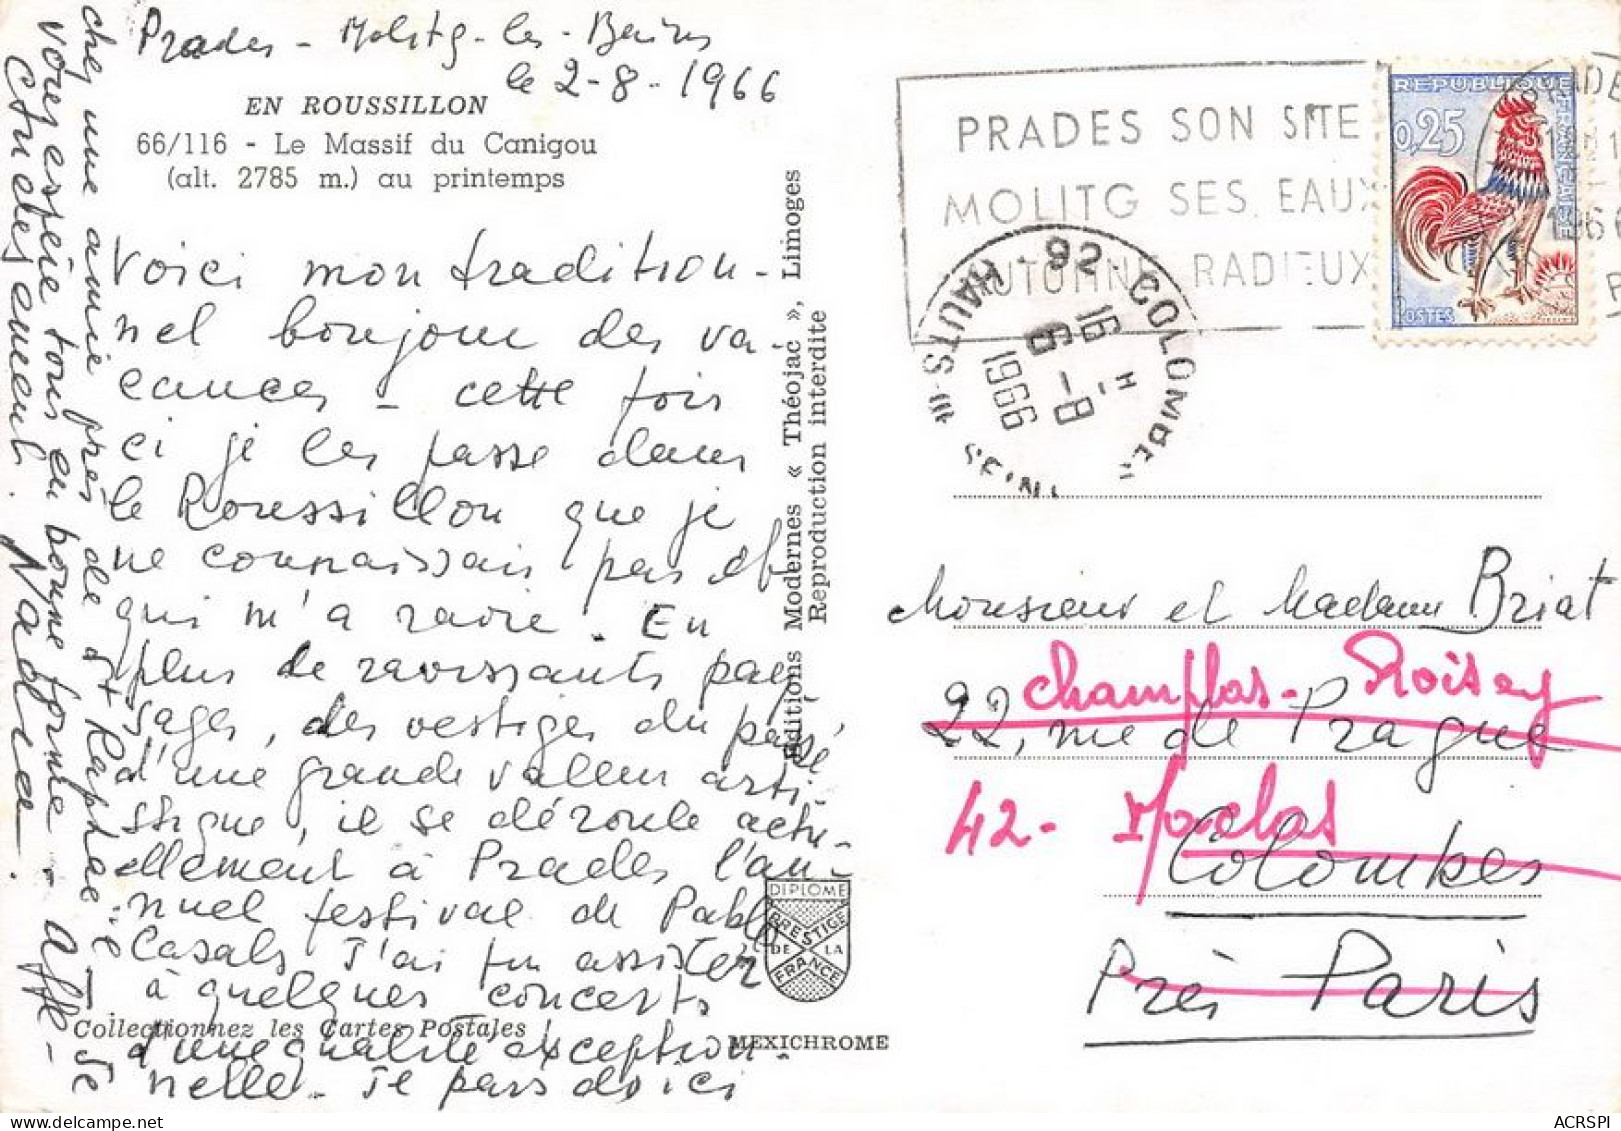 Prades - Molitg-les-Bains
le 2-8-1966
EN ROUSSILLON
66/116 - Le Massif du Canigou
(alt. 2785 m.) au printemps
Voici mon tradition-
nel bonjour des va-
cances - cette fois
ci je les passe dans
le Roussillon que je
ne connaissais pas et
qui m'a ravie. En
plus de ravissants pay
sages, des vestiges du passé
d'une grande valeur arti-
stique, il se déroule actu-
ellement à Prades l'an-
nuel festival de Pablo
Casals. J'ai pu assister
à quelques concerts
d'une qualité exception-
nelle. Je pars d'ici
chez une amie près de St Raphael. Je
vous espère tous en bonne forme. Affe-
ctueusement. Nadia.
Collectionnez les Cartes Postales
Editions Modernes « Théojac », Limoges
Reproduction interdite
DIPLOME
PRESTIGE
DE LA
FRANCE
MEXICHROME
PRADES SON SITE
MOLITG SES EAUX
AUTOMNE RADIEUX
REPUBLIQUE FRANCAISE
0,25
POSTES
1966
92 - COLOMBES
16 H
6 - 8
1966
HAUTS-S
Monsieur et Madame Briat
22, rue de Prague
Colombes
Près Paris
Champlas - Roisey
42 - Maclas
ACRSPI